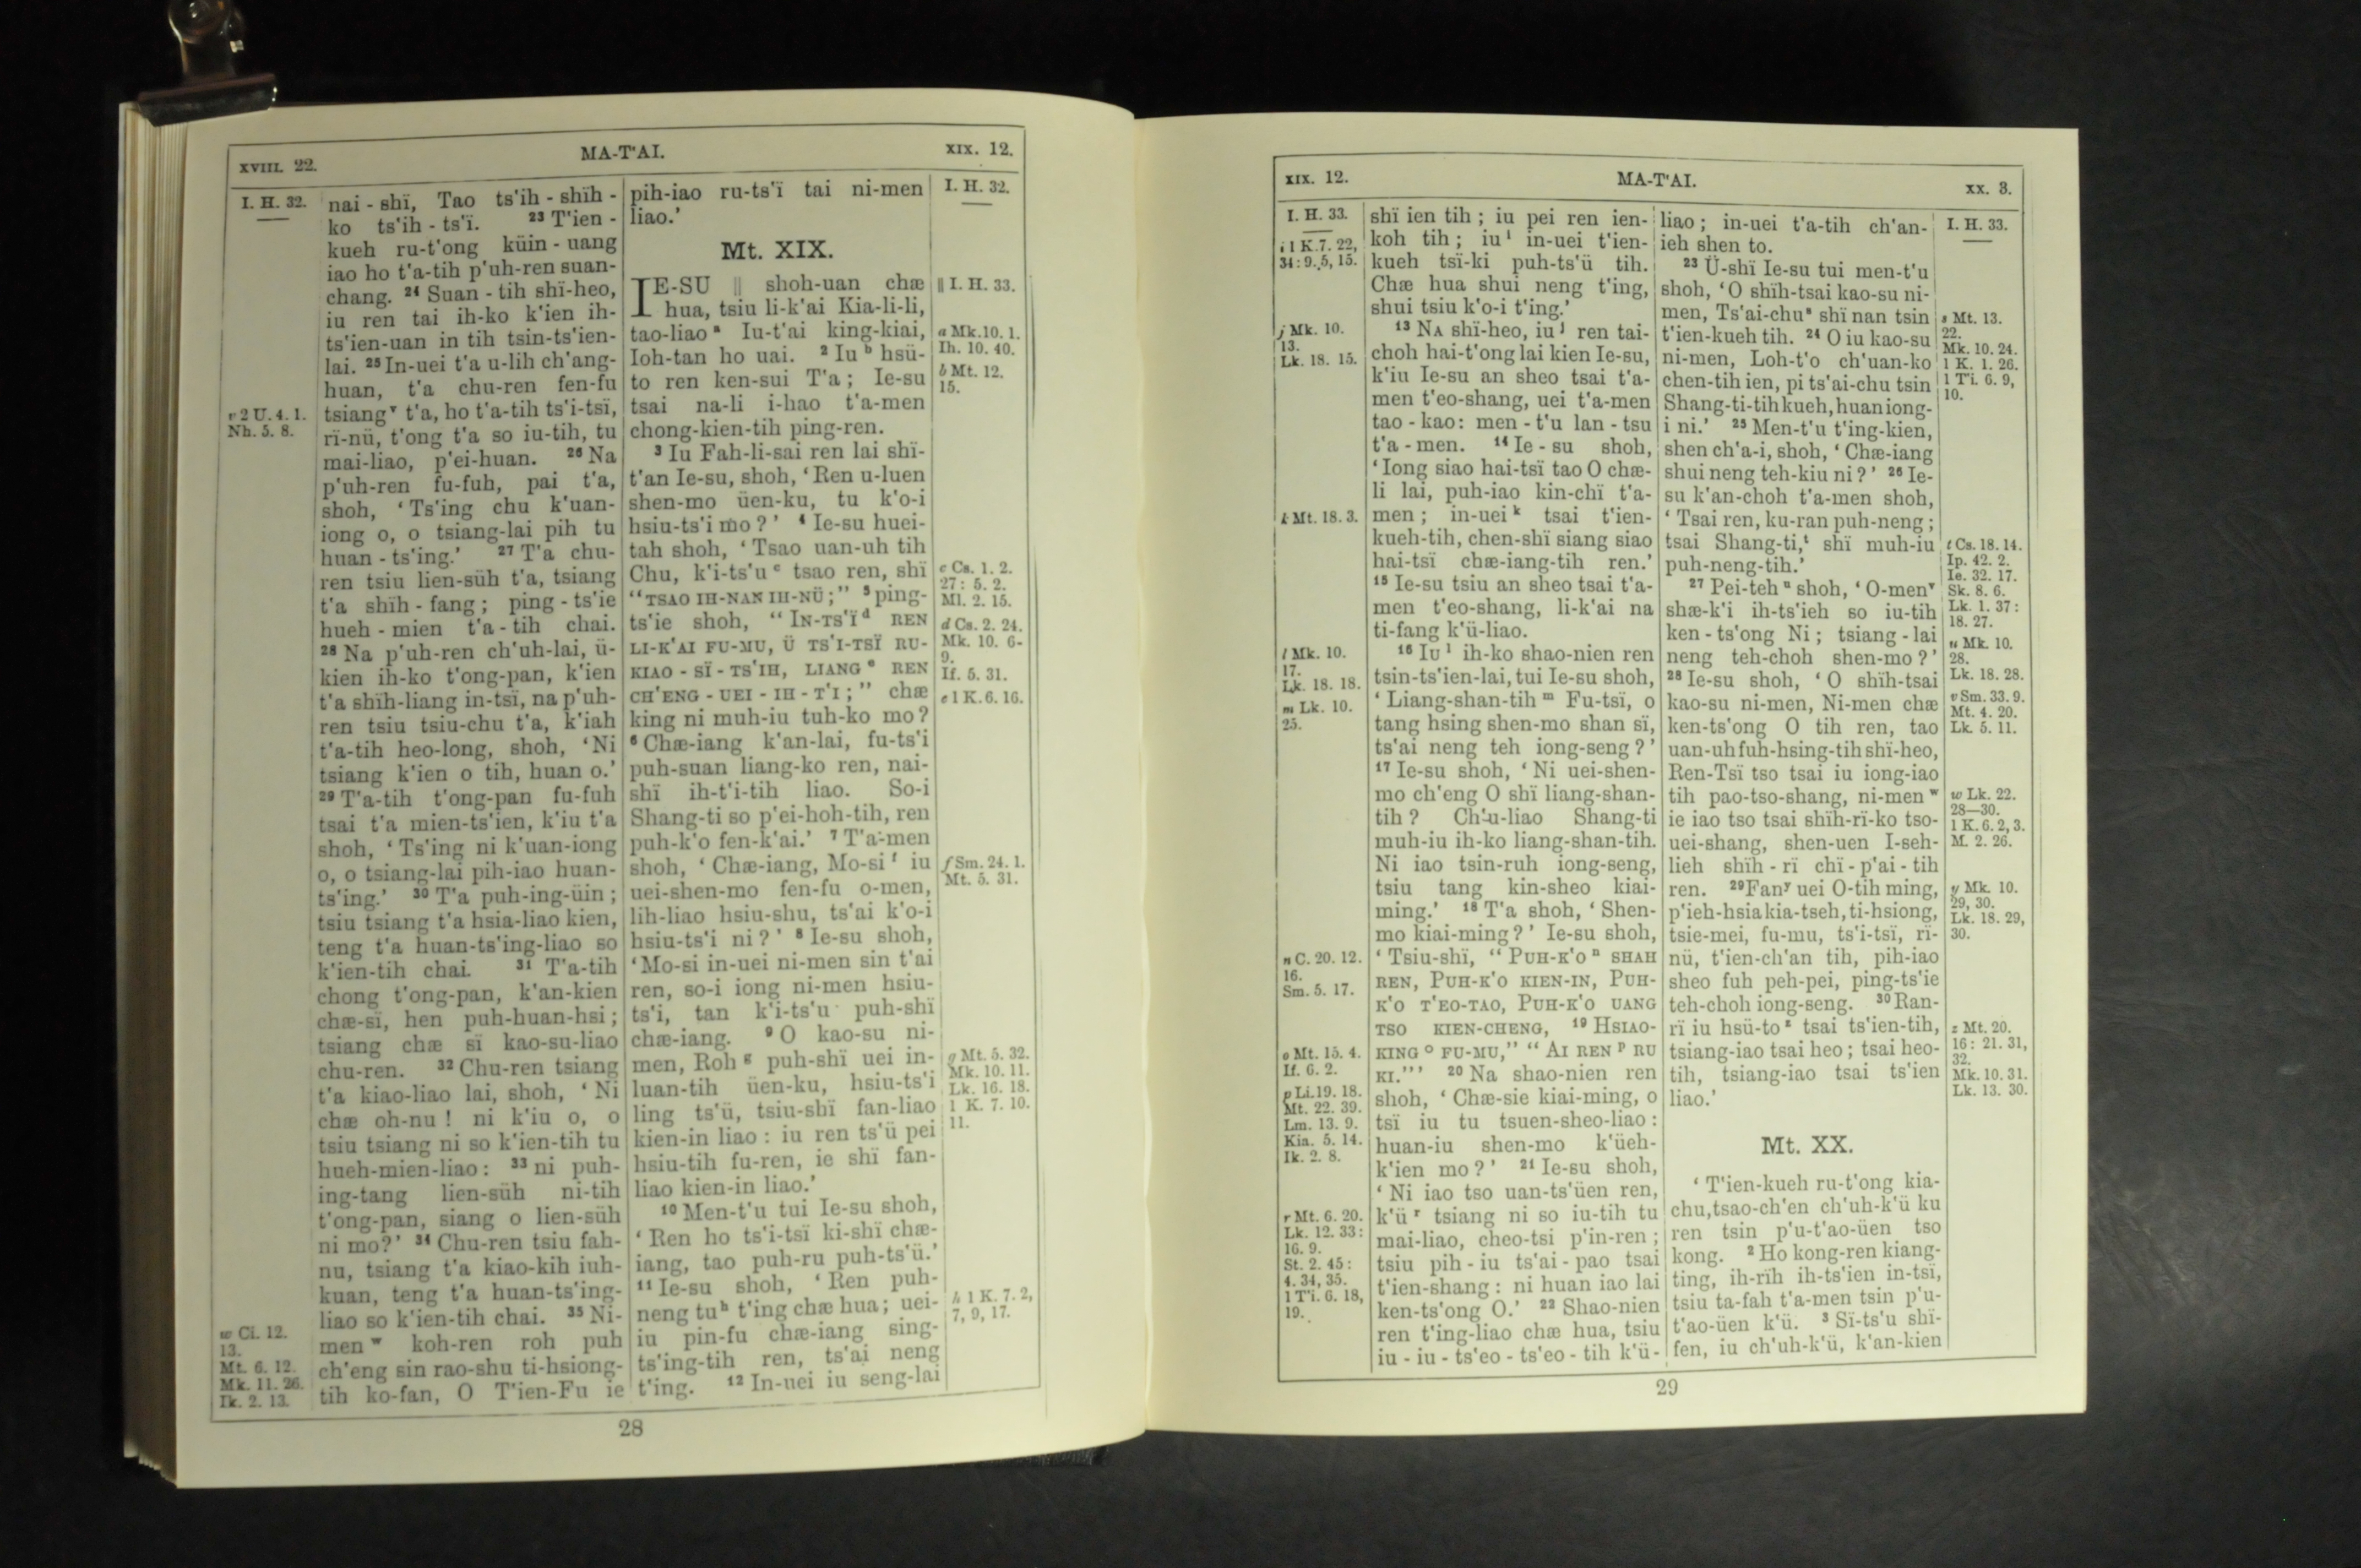 XVIII. 22.
MA-T'AI.
XIX. 12.
I. H. 32.
v 2 U. 4. 1.
Nh. 5. 8.
w Ci. 12.
13.
Mt. 6. 12.
Mk. 11. 26.
Ik. 2. 13.
nai - shï, Tao ts'ih - shïh -
ko ts'ih - ts'ï. 23 T'ien -
kueh ru-t'ong küin - uang
iao ho t'a-tih p'uh-ren suan-
chang. 24 Suan - tih shï-heo,
iu ren tai ih-ko k'ien ih-
ts'ien-uan in tih tsin-ts'ien-
lai. 25 In-uei t'a u-lih ch'ang-
huan, t'a chu-ren fen-fu
tsiang v t'a, ho t'a-tih ts'i-tsï,
rï-nü, t'ong t'a so iu-tih, tu
mai-liao, p'ei-huan. 26 Na
p'uh-ren fu-fuh, pai t'a,
shoh, ‘Ts'ing chu k'uan-
iong o, o tsiang-lai pih tu
huan - ts'ing.’ 27 T'a chu-
ren tsiu lien-süh t'a, tsiang
t'a shïh - fang ; ping - ts'ie
hueh - mien t'a - tih chai.
28 Na p'uh-ren ch'uh-lai, ü-
kien ih-ko t'ong-pan, k'ien
t'a shïh-liang in-tsï, na p'uh-
ren tsiu tsiu-chu t'a, k'iah
t'a-tih heo-long, shoh, ‘Ni
tsiang k'ien o tih, huan o.’
29 T'a-tih t'ong-pan fu-fuh
tsai t'a mien-ts'ien, k'iu t'a
shoh, ‘Ts'ing ni k'uan-iong
o, o tsiang-lai pih-iao huan-
ts'ing.’ 30 T'a puh-ing-üin ;
tsiu tsiang t'a hsia-liao kien,
teng t'a huan-ts'ing-liao so
k'ien-tih chai. 31 T'a-tih
chong t'ong-pan, k'an-kien
chæ-sï, hen puh-huan-hsi ;
tsiang chæ sï kao-su-liao
chu-ren. 32 Chu-ren tsiang
t'a kiao-liao lai, shoh, ‘Ni
chæ oh-nu ! ni k'iu o, o
tsiu tsiang ni so k'ien-tih tu
hueh-mien-liao : 33 ni puh-
ing-tang lien-süh ni-tih
t'ong-pan, siang o lien-süh
ni mo ?’ 34 Chu-ren tsiu fah-
nu, tsiang t'a kiao-kih iuh-
kuan, teng t'a huan-ts'ing-
liao so k'ien-tih chai. 35 Ni-
men w koh-ren roh puh
ch'eng sin rao-shu ti-hsiong-
tih ko-fan, O T'ien-Fu ie
pih-iao ru-ts'ï tai ni-men
liao.’
Mt. XIX.
IE-SU ‖ shoh-uan chæ
hua, tsiu li-k'ai Kia-li-li,
tao-liao a Iu-t'ai king-kiai,
Ioh-tan ho uai. 2 Iu b hsü-
to ren ken-sui T'a ; Ie-su
tsai na-li i-hao t'a-men
chong-kien-tih ping-ren.
3 Iu Fah-li-sai ren lai shï-
t'an Ie-su, shoh, ‘Ren u-luen
shen-mo üen-ku, tu k'o-i
hsiu-ts'i mo ?’ 4 Ie-su huei-
tah shoh, ‘Tsao uan-uh tih
Chu, k'i-ts'u c tsao ren, shï
“TSAO IH-NAN IH-NÜ ;” 5 ping-
ts'ie shoh, “ IN-TS'Ï d REN
LI-K'AI FU-MU, Ü TS'I-TSÏ RU-
KIAO - SÏ - TS'IH, LIANG e REN
CH'ENG - UEI - IH - T'I ;” chæ
king ni muh-iu tuh-ko mo ?
6 Chæ-iang k'an-lai, fu-ts'i
puh-suan liang-ko ren, nai-
shï ih-t'i-tih liao. So-i
Shang-ti so p'ei-hoh-tih, ren
puh-k'o fen-k'ai.’ 7 T'a-men
shoh, ‘Chæ-iang, Mo-si f iu
uei-shen-mo fen-fu o-men,
lih-liao hsiu-shu, ts'ai k'o-i
hsiu-ts'i ni ?’ 8 Ie-su shoh,
‘Mo-si in-uei ni-men sin t'ai
ren, so-i iong ni-men hsiu-
ts'i, tan k'i-ts'u puh-shï
chæ-iang. 9 O kao-su ni-
men, Roh g puh-shï uei in-
luan-tih üen-ku, hsiu-ts'i
ling ts'ü, tsiu-shï fan-liao
kien-in liao : iu ren ts'ü pei
hsiu-tih fu-ren, ie shï fan-
liao kien-in liao.’
10 Men-t'u tui Ie-su shoh,
‘Ren ho ts'i-tsï ki-shï chæ-
iang, tao puh-ru puh-ts'ü.’
11 Ie-su shoh, ‘Ren puh-
neng tu h t'ing chæ hua ; uei-
iu pin-fu chæ-iang sing-
ts'ing-tih ren, ts'ai neng
t'ing. 12 In-uei iu seng-lai
I. H. 32.
‖ I. H. 33.
a Mk. 10. 1.
Ih. 10. 40.
b Mt. 12.
15.
c Cs. 1. 2.
27 : 5. 2.
Ml. 2. 15.
d Cs. 2. 24.
Mk. 10. 6-
9.
If. 5. 31.
e 1 K. 6. 16.
f Sm. 24. 1.
Mt. 5. 31.
g Mt. 5. 32.
Mk. 10. 11.
Lk. 16. 18.
1 K. 7. 10.
11.
h 1 K. 7. 2,
7, 9, 17.
28
XIX. 12.
MA-T'AI.
XX. 3.
I. H. 33.
i 1 K. 7. 22,
34 : 9. 5, 15.
j Mk. 10.
13.
Lk. 18. 15.
k Mt. 18. 3.
l Mk. 10.
17.
Lk. 18. 18.
m Lk. 10.
25.
n C. 20. 12.
16.
Sm. 5. 17.
o Mt. 15. 4.
If. 6. 2.
p Li. 19. 18.
Mt. 22. 39.
Lm. 13. 9.
Kia. 5. 14.
Ik. 2. 8.
r Mt. 6. 20.
Lk. 12. 33 :
16. 9.
St. 2. 45 :
4. 34, 35.
1 T'i. 6. 18,
19.
shï ien tih ; iu pei ren ien-
koh tih ; iu i in-uei t'ien-
kueh tsï-ki puh-ts'ü tih.
Chæ hua shui neng t'ing,
shui tsiu k'o-i t'ing.’
13 NA shï-heo, iu j ren tai-
choh hai-t'ong lai kien Ie-su,
k'iu Ie-su an sheo tsai t'a-
men t'eo-shang, uei t'a-men
tao - kao : men - t'u lan - tsu
t'a - men. 14 Ie - su shoh,
‘Iong siao hai-tsï tao O chæ-
li lai, puh-iao kin-chï t'a-
men ; in-uei k tsai t'ien-
kueh-tih, chen-shï siang siao
hai-tsï chæ-iang-tih ren.’
15 Ie-su tsiu an sheo tsai t'a-
men t'eo-shang, li-k'ai na
ti-fang k'ü-liao.
16 IU l ih-ko shao-nien ren
tsin-ts'ien-lai, tui Ie-su shoh,
‘Liang-shan-tih m Fu-tsï, o
tang hsing shen-mo shan sï,
ts'ai neng teh iong-seng ?’
17 Ie-su shoh, ‘Ni uei-shen-
mo ch'eng O shï liang-shan-
tih ? Ch'u-liao Shang-ti
muh-iu ih-ko liang-shan-tih.
Ni iao tsin-ruh iong-seng,
tsiu tang kin-sheo kiai-
ming.’ 18 T'a shoh, ‘Shen-
mo kiai-ming ?’ Ie-su shoh,
‘Tsiu-shï, “ PUH-K'O n SHAH
REN, PUH-K'O KIEN-IN, PUH-
K'O T'EO-TAO, PUH-K'O UANG
TSO KIEN-CHENG, 19 HSIAO-
KING o FU-MU,” “ AI REN p RU
KI.”’ 20 Na shao-nien ren
shoh, ‘Chæ-sie kiai-ming, o
tsï iu tu tsuen-sheo-liao :
huan-iu shen-mo k'üeh-
k'ien mo ?’ 21 Ie-su shoh,
‘Ni iao tso uan-ts'üen ren,
k'ü r tsiang ni so iu-tih tu
mai-liao, cheo-tsi p'in-ren ;
tsiu pih - iu ts'ai - pao tsai
t'ien-shang : ni huan iao lai
ken-ts'ong O.’ 22 Shao-nien
ren t'ing-liao chæ hua, tsiu
iu - iu - ts'eo - ts'eo - tih k'ü-
liao ; in-uei t'a-tih ch'an-
ieh shen to.
23 Ü-shï Ie-su tui men-t'u
shoh, ‘O shïh-tsai kao-su ni-
men, Ts'ai-chu s shï nan tsin
t'ien-kueh tih. 24 O iu kao-su
ni-men, Loh-t'o ch'uan-ko
chen-tih ien, pi ts'ai-chu tsin
Shang-ti-tih kueh, huan iong-
i ni.’ 25 Men-t'u t'ing-kien,
shen ch'a-i, shoh, ‘Chæ-iang
shui neng teh-kiu ni ?’ 26 Ie-
su k'an-choh t'a-men shoh,
‘Tsai ren, ku-ran puh-neng ;
tsai Shang-ti, t shï muh-iu
puh-neng-tih.’
27 Pei-teh u shoh, ‘O-men v
shæ-k'i ih-ts'ieh so iu-tih
ken - ts'ong Ni ; tsiang - lai
neng teh-choh shen-mo ?’
28 Ie-su shoh, ‘O shïh-tsai
kao-su ni-men, Ni-men chæ
ken-ts'ong O tih ren, tao
uan-uh fuh-hsing-tih shï-heo,
Ren-Tsï tso tsai iu iong-iao
tih pao-tso-shang, ni-men w
ie iao tso tsai shïh-rï-ko tso-
uei-shang, shen-uen I-seh-
lieh shïh - rï chï - p'ai - tih
ren. 29 Fan y uei O-tih ming,
p'ieh-hsia kia-tseh, ti-hsiong,
tsie-mei, fu-mu, ts'i-tsï, rï-
nü, t'ien-ch'an tih, pih-iao
sheo fuh peh-pei, ping-ts'ie
teh-choh iong-seng. 30 Ran-
rï iu hsü-to z tsai ts'ien-tih,
tsiang-iao tsai heo ; tsai heo-
tih, tsiang-iao tsai ts'ien
liao.’
Mt. XX.
‘T'ien-kueh ru-t'ong kia-
chu, tsao-ch'en ch'uh-k'ü ku
ren tsin p'u-t'ao-üen tso
kong. 2 Ho kong-ren kiang-
ting, ih-rïh ih-ts'ien in-tsï,
tsiu ta-fah t'a-men tsin p'u-
t'ao-üen k'ü. 3 Sï-ts'u shï-
fen, iu ch'uh-k'ü, k'an-kien
I. H. 33.
s Mt. 13.
22.
Mk. 10. 24.
1 K. 1. 26.
1 T'i. 6. 9,
10.
t Cs. 18. 14.
Ip. 42. 2.
Ie. 32. 17.
Sk. 8. 6.
Lk. 1. 37 :
18. 27.
u Mk. 10.
28.
Lk. 18. 28.
v Sm. 33. 9.
Mt. 4. 20.
Lk. 5. 11.
w Lk. 22.
28—30.
1 K. 6. 2, 3.
M. 2. 26.
y Mk. 10.
29, 30.
Lk. 18. 29,
30.
z Mt. 20.
16 : 21. 31,
32.
Mk. 10. 31.
Lk. 13. 30.
29